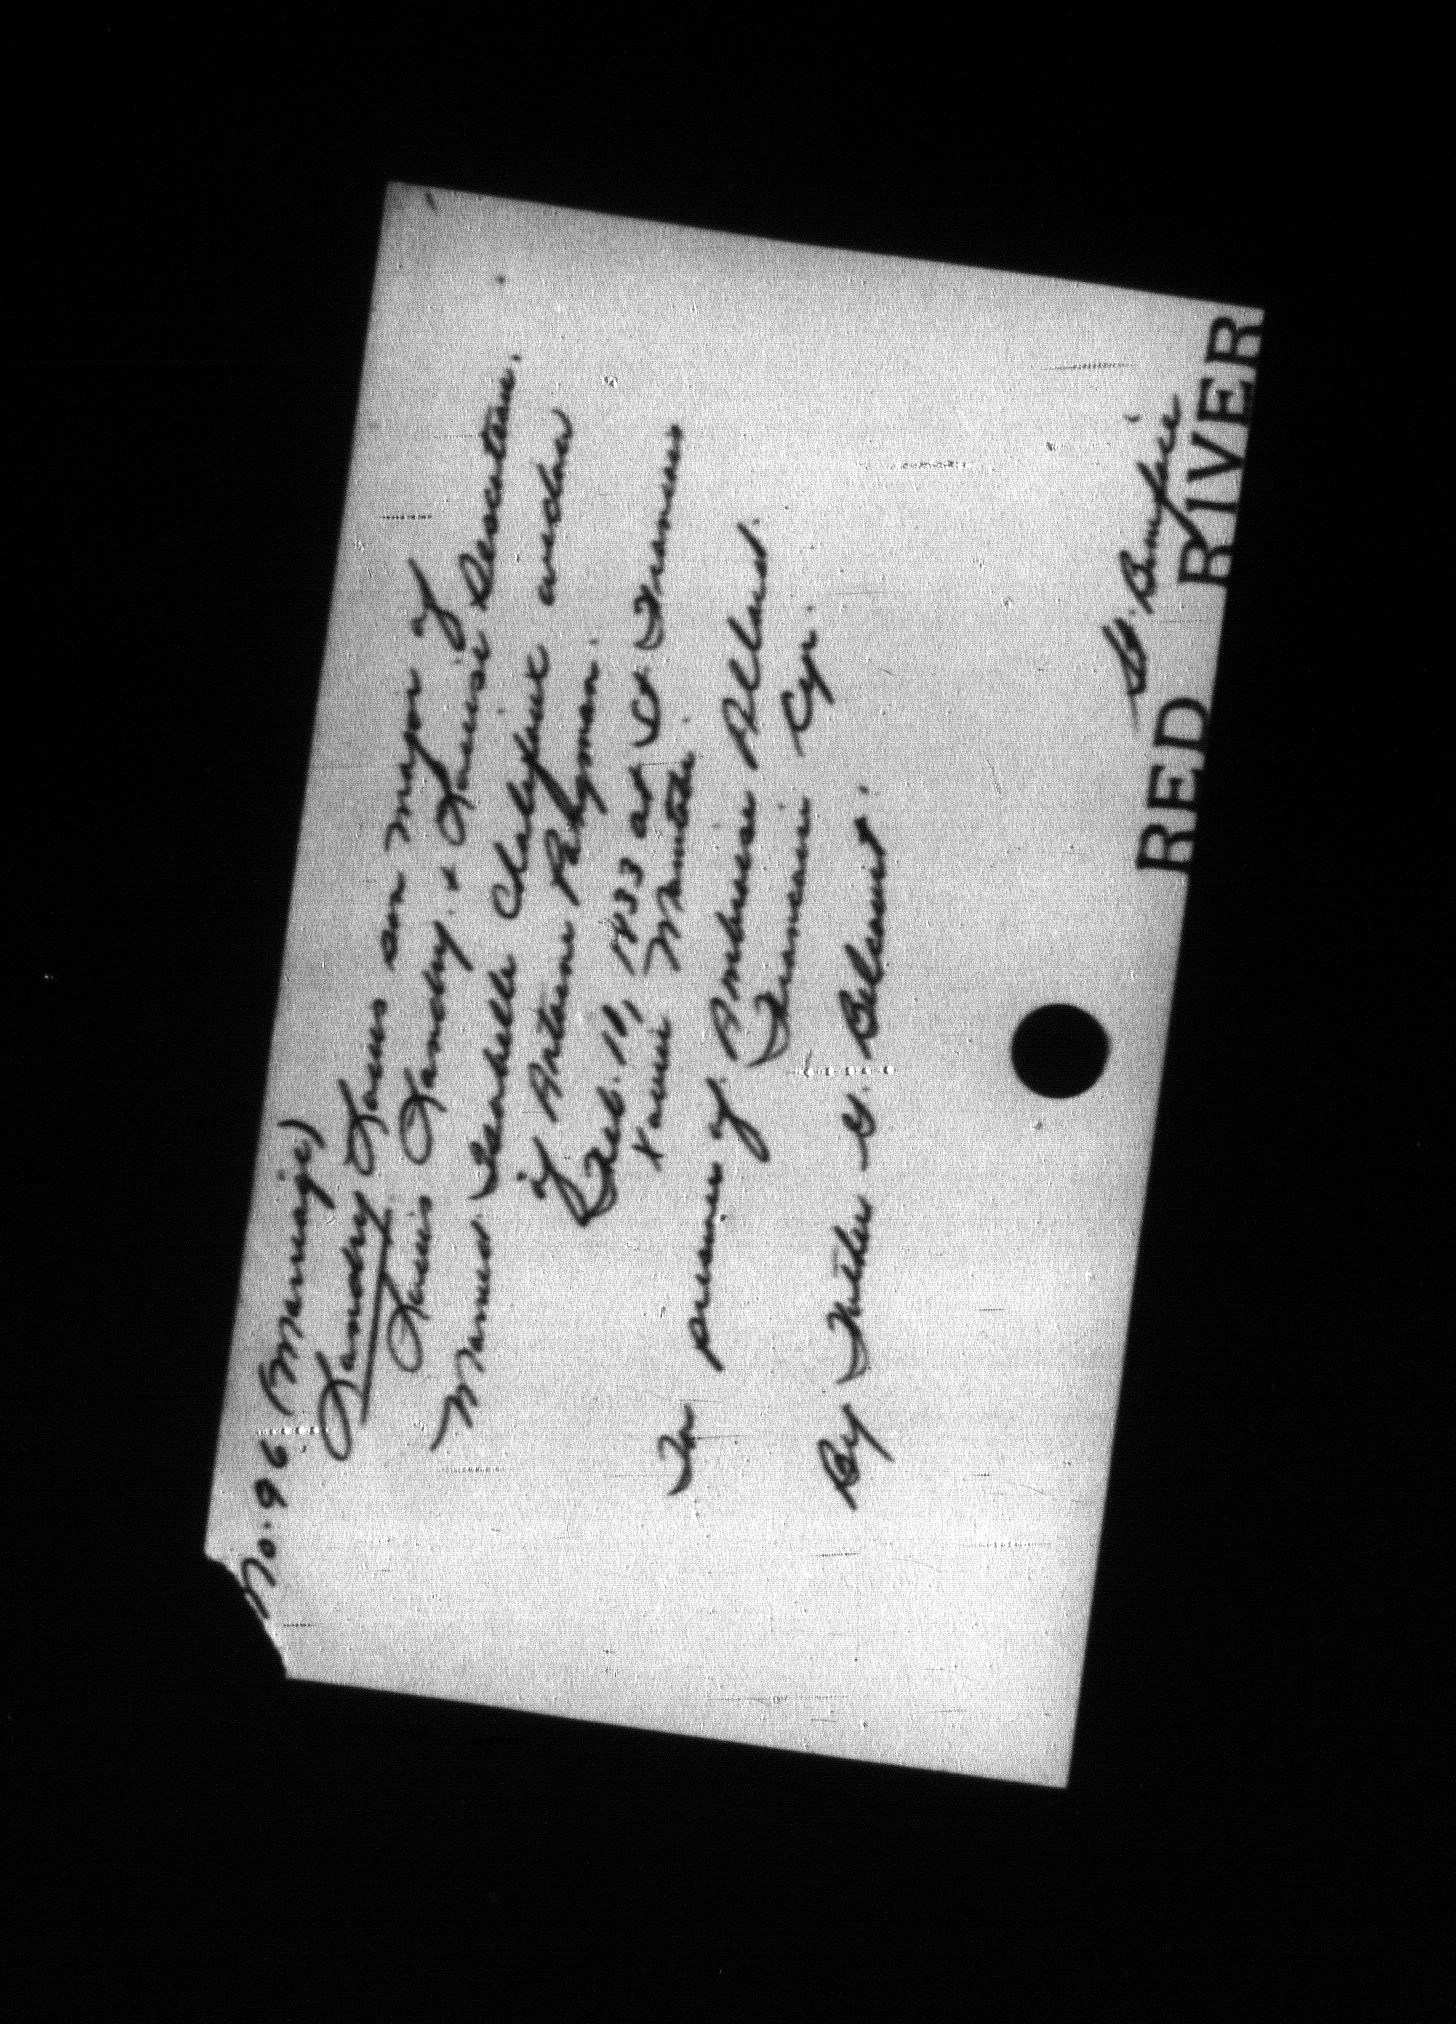 No. 96 (Marriage)
Landry Louis son major of
Louis Landry & Louise Decoteau.
Married Isabelle Chalifoux widow
of Antoine Pangman.
Feb. 11, 1833 at St. Francois
Xavier Manitoba.
In presence of Ambroise Allard.
Francois Cyr.
By Father G. Belcourt.
St. Boniface
RED RIVER